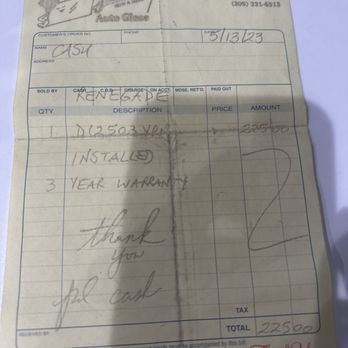 Auto Glass
(205) 321-6513
CUSTOMER'S ORDER NO. PHONE DATE 5/13/23
NAME CASH
ADDRESS
SOLD BY CASH C.O.D. CHARGE ON ACCT. MDSE. RET'D. PAID OUT
RENEGADE
QTY. DESCRIPTION PRICE AMOUNT
1 22500
INSTALLED
3 YEAR WARRANTY
thank
you
pd cash
TAX
RECEIVED BY TOTAL 22500
must be accompanied by this bill.